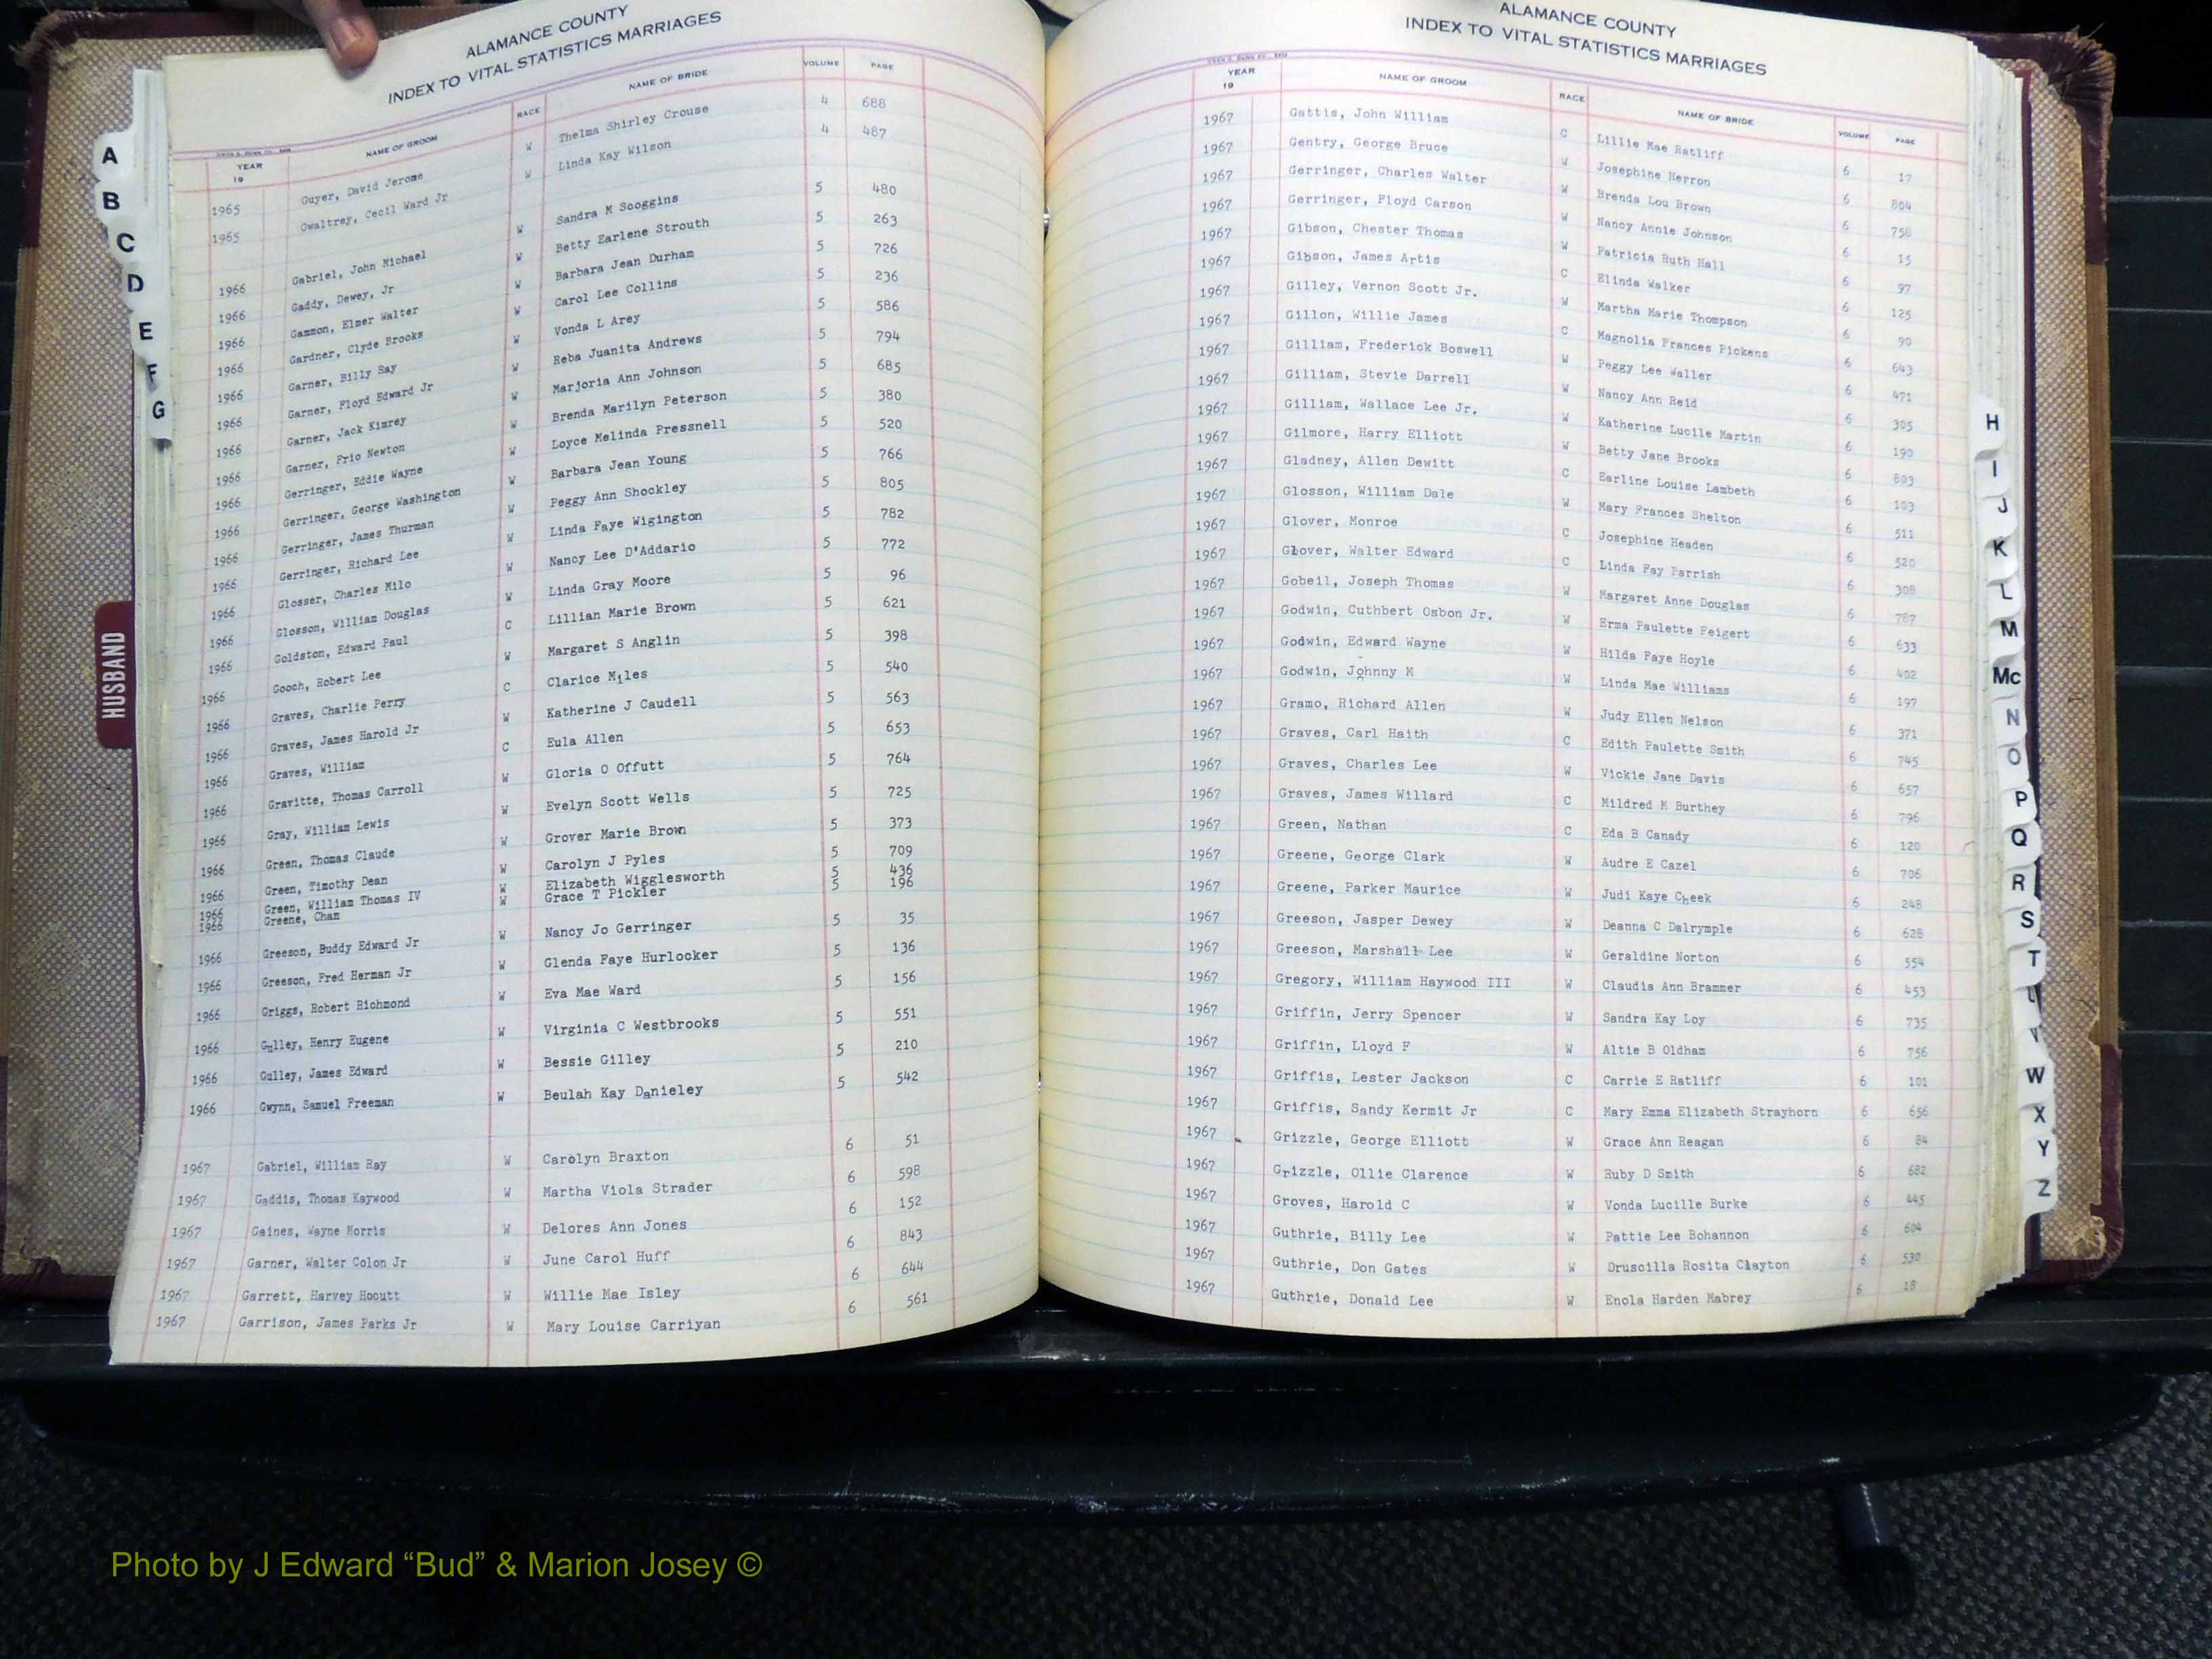 ALAMANCE COUNTY
INDEX TO VITAL STATISTICS MARRIAGES
YEAR 19 NAME OF GROOM RACE NAME OF BRIDE VOLUME PAGE
1965 Guyer, David Jerome W Thelma Shirley Crouse 4 688
1965 Gwaltrey, Cecil Ward Jr W Linda Kay Wilson 4 487
1966 Gabriel, John Michael W Sandra M Scoggins 5 480
1966 Gaddy, Dewey, Jr W Betty Earlene Strouth 5 263
1966 Gammon, Elmer Walter W Barbara Jean Durham 5 726
1966 Gardner, Clyde Brooks W Carol Lee Collins 5 236
1966 Garner, Billy Ray W Vonda L Arey 5 586
1966 Garner, Floyd Edward Jr W Reba Juanita Andrews 5 794
1966 Garner, Jack Kimrey W Marjoria Ann Johnson 5 685
1966 Garner, Frio Newton W Brenda Marilyn Peterson 5 380
1966 Gerringer, Eddie Wayne W Loyce Melinda Pressnell 5 520
1966 Gerringer, George Washington W Barbara Jean Young 5 766
1966 Gerringer, James Thurman W Peggy Ann Shockley 5 805
1966 Gerringer, Richard Lee W Linda Faye Wigington 5 782
1966 Glosser, Charles Milo W Nancy Lee D'Addario 5 772
1966 Glosson, William Douglas W Linda Gray Moore 5 96
1966 Goldston, Edward Paul C Lillian Marie Brown 5 621
1966 Gooch, Robert Lee W Margaret S Anglin 5 398
1966 Graves, Charlie Perry C Clarice Miles 5 540
1966 Graves, James Harold Jr W Katherine J Caudell 5 563
1966 Graves, William C Eula Allen 5 653
1966 Gravitte, Thomas Carroll W Gloria O Offutt 5 764
1966 Gray, William Lewis W Evelyn Scott Wells 5 725
1966 Green, Thomas Claude W Grover Marie Brown 5 373
1966 Green, Timothy Dean W Carolyn J Pyles 5 709
1966 Green, William Thomas IV W Elizabeth Wigglesworth 5 436
1966 Greene, Cham W Grace T Pickler 5 196
1966 Greeson, Buddy Edward Jr W Nancy Jo Gerringer 5 35
1966 Greeson, Fred Herman Jr W Glenda Faye Hurlocker 5 136
1966 Griggs, Robert Richmond W Eva Mae Ward 5 156
1966 Gulley, Henry Eugene W Virginia C Westbrooks 5 551
1966 Gulley, James Edward W Bessie Gilley 5 210
1966 Gwynn, Samuel Freeman W Beulah Kay Danieley 5 542
1967 Gabriel, William Ray W Carolyn Braxton 6 51
1967 Gaddis, Thomas Kaywood W Martha Viola Strader 6 598
1967 Gaines, Wayne Morris W Delores Ann Jones 6 152
1967 Garner, Walter Colon Jr W June Carol Huff 6 843
1967 Garrett, Harvey Hocutt W Willie Mae Isley 6 644
1967 Garrison, James Parks Jr W Mary Louise Carriyan 6 561
A
B
C
D
E
F
G
HUSBAND
ALAMANCE COUNTY
INDEX TO VITAL STATISTICS MARRIAGES
YEAR 19 NAME OF GROOM RACE NAME OF BRIDE VOLUME PAGE
1967 Gattis, John William C Lillie Mae Ratliff 6 17
1967 Gentry, George Bruce W Josephine Herron 6 804
1967 Gerringer, Charles Walter W Brenda Lou Brown 6 758
1967 Gerringer, Floyd Carson W Nancy Annie Johnson 6 15
1967 Gibson, Chester Thomas W Patricia Ruth Hall 6 97
1967 Gibson, James Artis C Elinda Walker 6 125
1967 Gilley, Vernon Scott Jr. W Martha Marie Thompson 6 90
1967 Gillon, Willie James C Magnolia Frances Pickens 6 643
1967 Gilliam, Frederick Boswell W Peggy Lee Waller 6 471
1967 Gilliam, Stevie Darrell W Nancy Ann Reid 6 305
1967 Gilliam, Wallace Lee Jr. W Katherine Lucile Martin 6 190
1967 Gilmore, Harry Elliott W Betty Jane Brooks 6 803
1967 Gladney, Allen Dewitt C Earline Louise Lambeth 6 103
1967 Glosson, William Dale W Mary Frances Shelton 6 511
1967 Glover, Monroe C Josephine Headen 6 520
1967 Glover, Walter Edward C Linda Fay Parrish 6 308
1967 Gobeil, Joseph Thomas W Margaret Anne Douglas 6 787
1967 Godwin, Cuthbert Osbon Jr. W Erma Paulette Feigert 6 633
1967 Godwin, Edward Wayne W Hilda Faye Hoyle 6 402
1967 Godwin, Johnny M W Linda Mae Williams 6 197
1967 Gramo, Richard Allen W Judy Ellen Nelson 6 371
1967 Graves, Carl Haith C Edith Paulette Smith 6 745
1967 Graves, Charles Lee W Vickie Jane Davis 6 657
1967 Graves, James Willard C Mildred M Burthey 6 796
1967 Green, Nathan C Eda B Canady 6 120
1967 Greene, George Clark W Audre E Cazel 6 706
1967 Greene, Parker Maurice W Judi Kaye Cheek 6 248
1967 Greeson, Jasper Dewey W Deanna C Dalrymple 6 628
1967 Greeson, Marshall Lee W Geraldine Norton 6 554
1967 Gregory, William Haywood III W Claudia Ann Brammer 6 453
1967 Griffin, Jerry Spencer W Sandra Kay Loy 6 735
1967 Griffin, Lloyd F W Altie B Oldham 6 756
1967 Griffis, Lester Jackson C Carrie E Ratliff 6 101
1967 Griffis, Sandy Kermit Jr C Mary Emma Elizabeth Strayhorn 6 656
1967 Grizzle, George Elliott W Grace Ann Reagan 6 84
1967 Grizzle, Ollie Clarence W Ruby D Smith 6 682
1967 Groves, Harold C W Vonda Lucille Burke 6 445
1967 Guthrie, Billy Lee W Pattie Lee Bohannon 6 604
1967 Guthrie, Don Gates W Druscilla Rosita Clayton 6 530
1967 Guthrie, Donald Lee W Enola Harden Mabrey 6 18
H
I
J
K
L
M
Mc
N
O
P
Q
R
S
T
U
V
W
X
Y
Z
Photo by J Edward “Bud” & Marion Josey ©